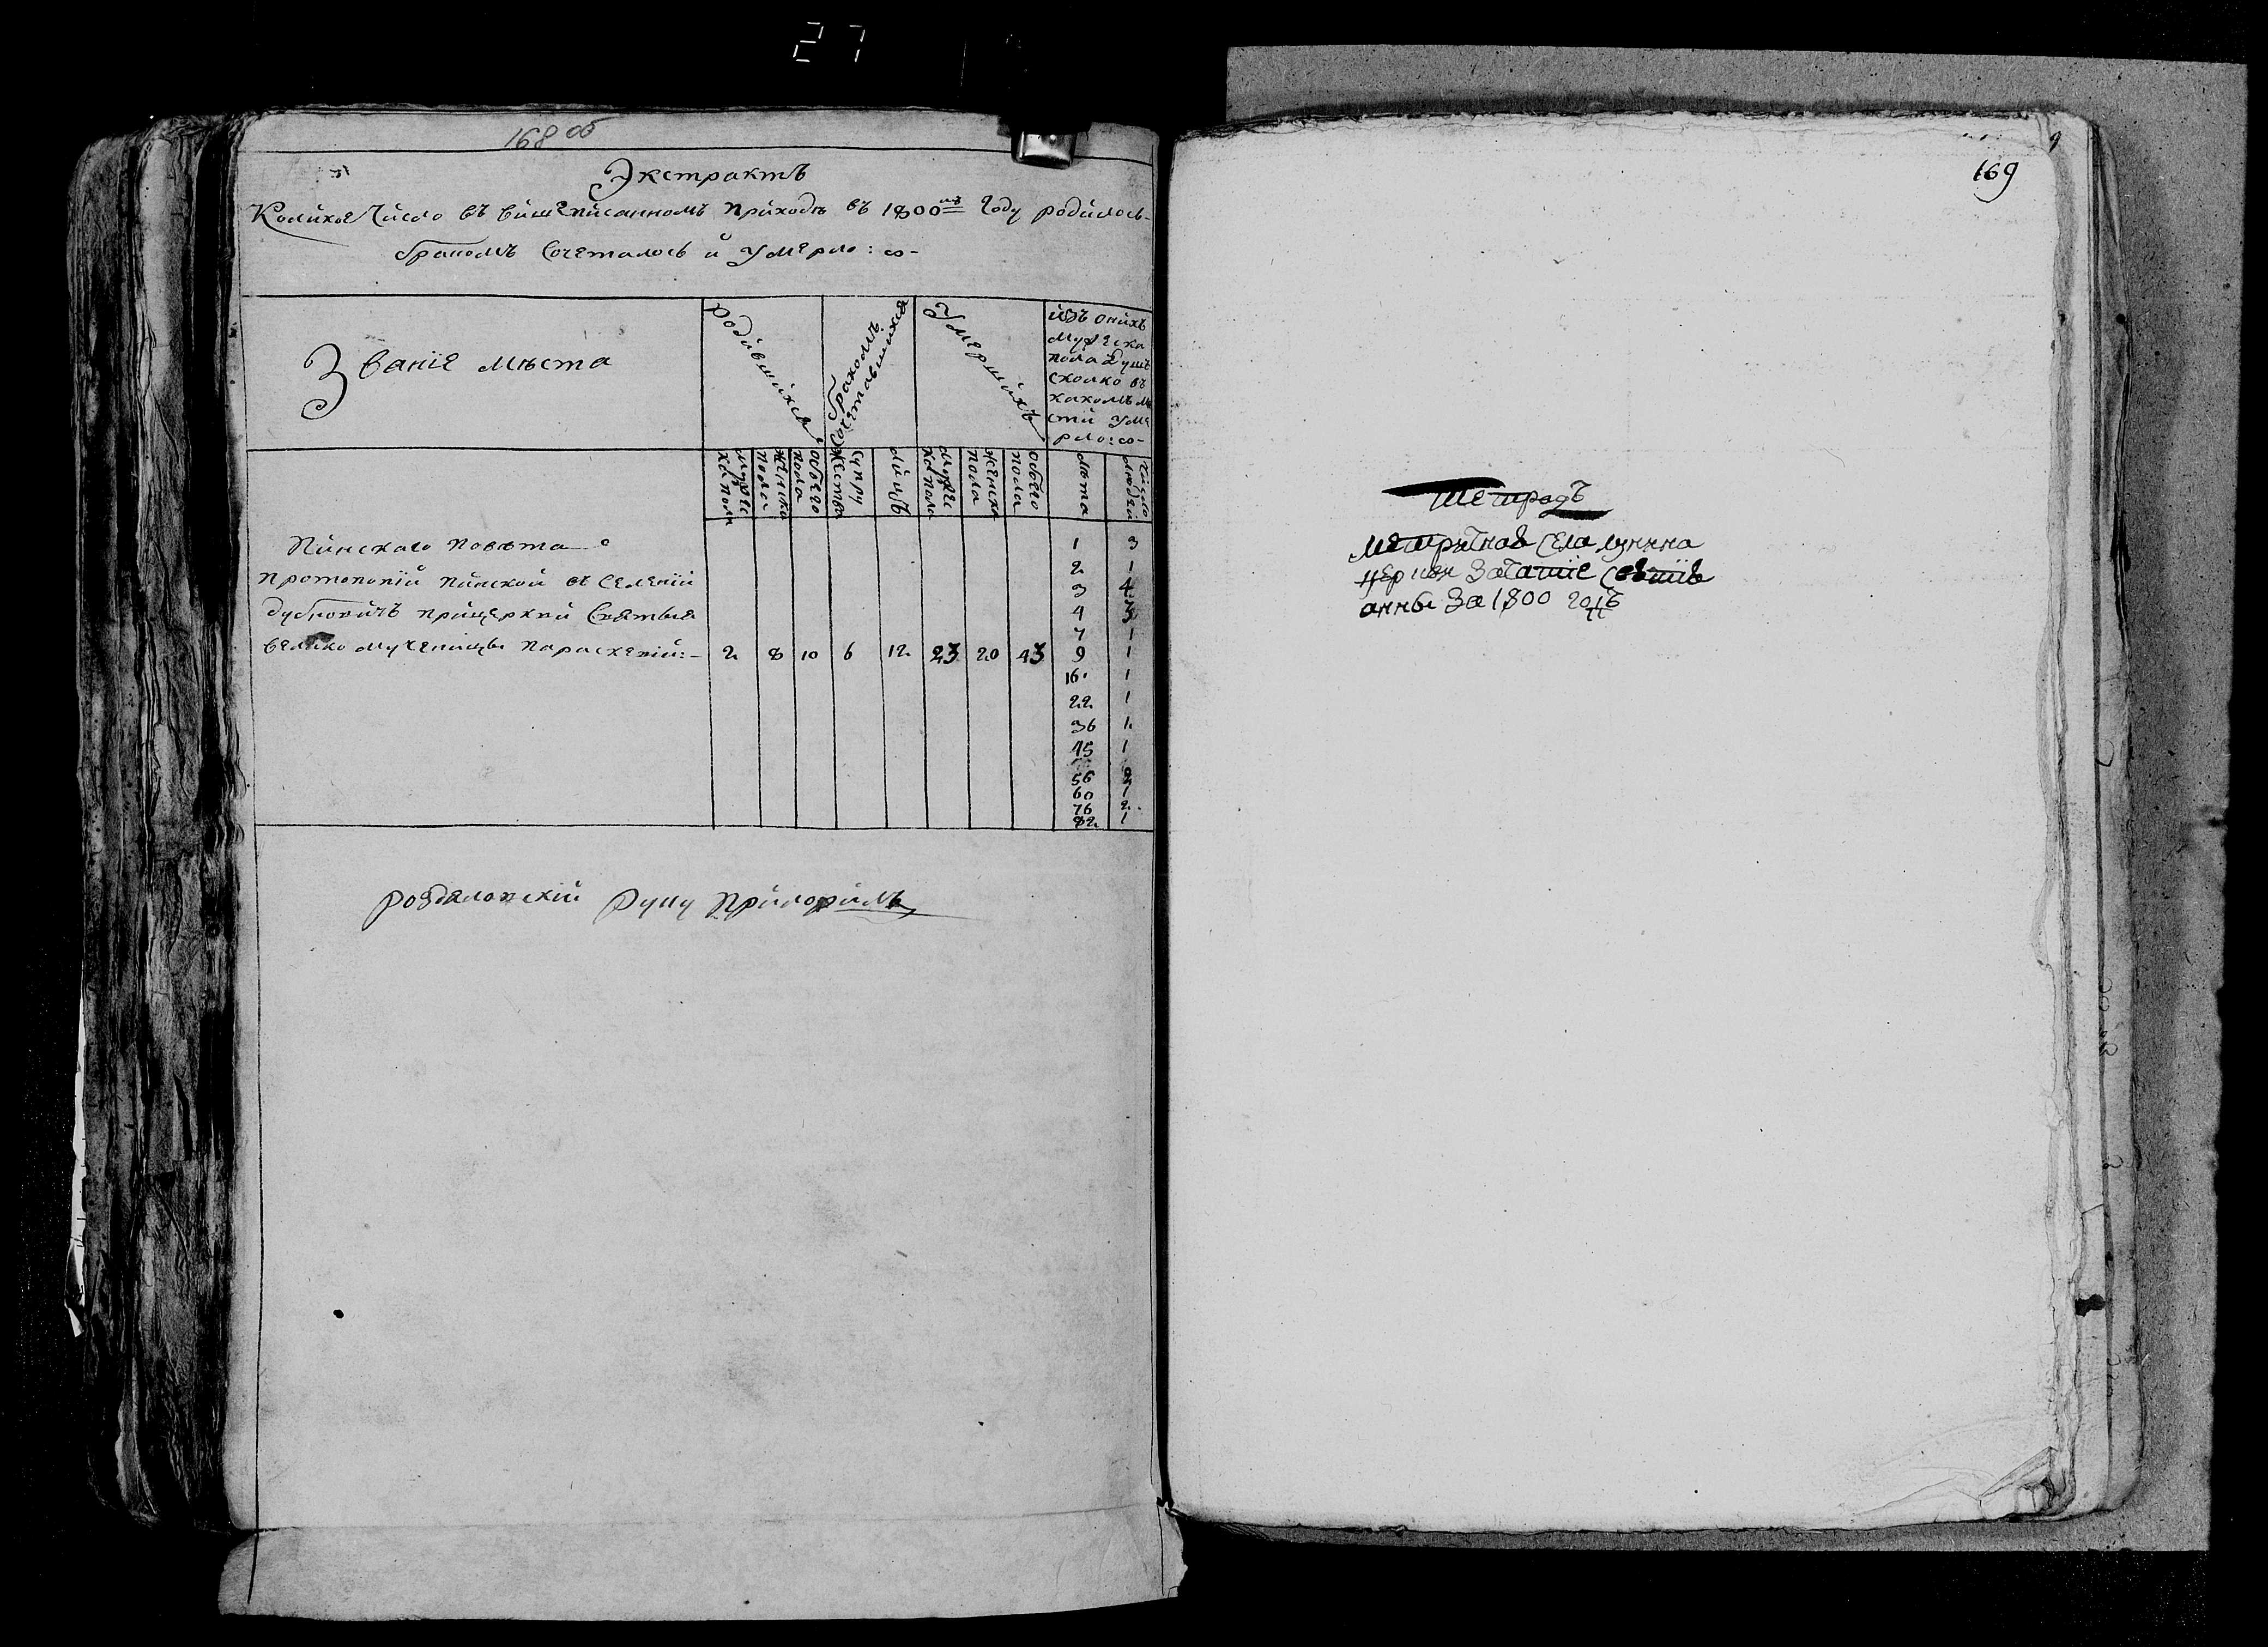 27
168 об
Экстрактъ
Коликое Число въ вишеписанномъ приходѣ въ 1800мъ Году родилось
бракомъ Сочеталось и Умерло:
Званіе мѣста
родившихся
бракомъ Сочетавшихся
Умершихъ
изъ онихъ
мужеска
пола душъ
сколко въ
какомъ
умерло
мужеска пола
женска пола
обоего пола
супружества
лицъ
мужеска пола
женска пола
обоего пола
лѣта
число людей
Пинскаго повѣта
протопопій пинской въ Селеніи
дубновичъ прицеркви Святыя
велико мученицы параскевіи:
2 8 10 6 12 23 20 43
1 3
2 1
3 4
4 3
7 1
9 1
16 1
22 1
36 1
45 1
56 2
60 1
76 2
82 1
руку приложилъ
169
тетрадъ
метричная села лунина
церкви Зачатіе святія
анны За 1800 годъ